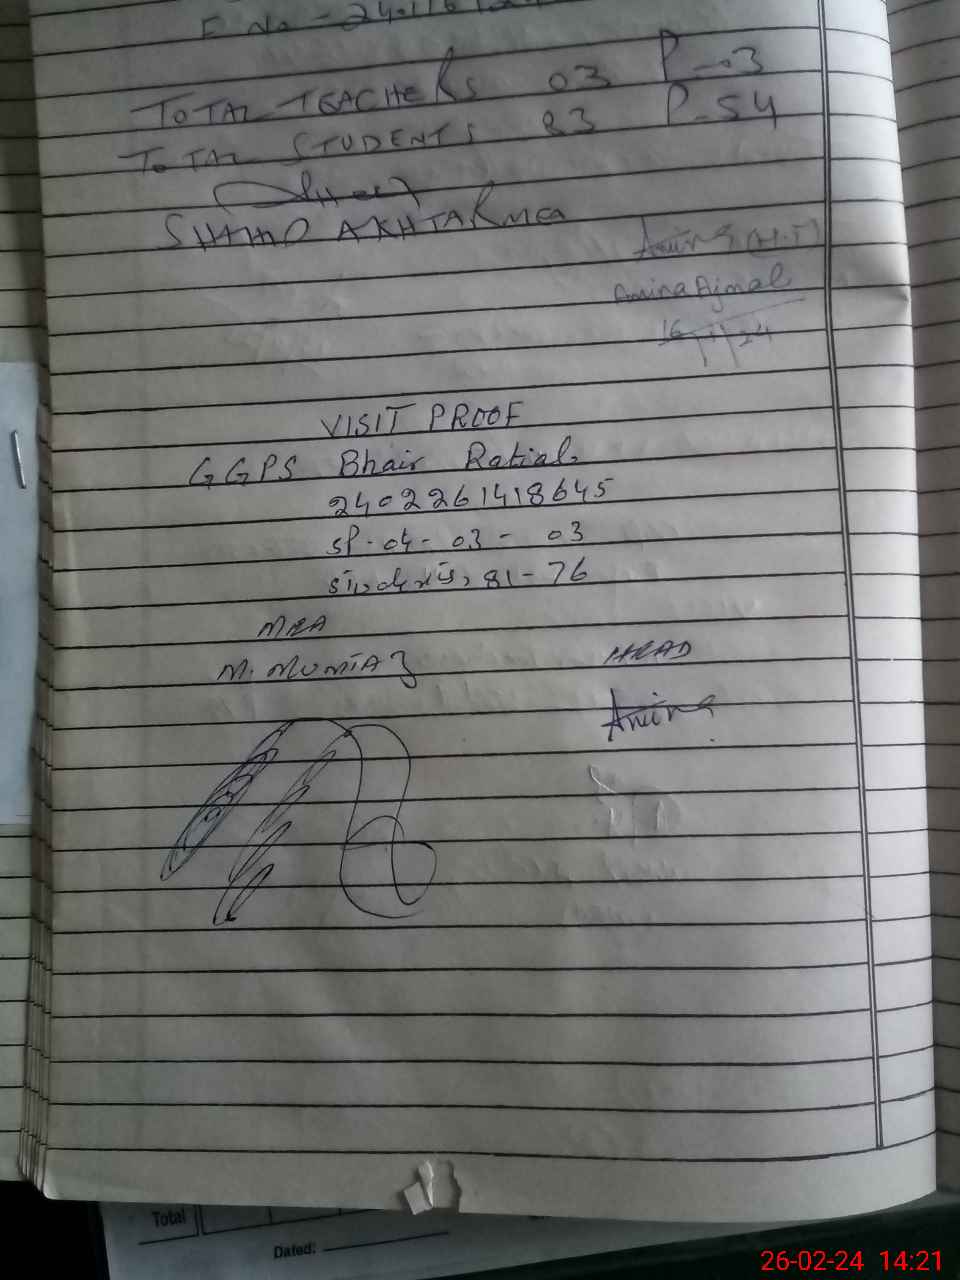 TOTAL TEACHERS 03 P-03
TOTAL STUDENTS 83 P-54
AKHTAR MEA
Amina (H.T)
Amina Ajmal
16/1/24
VISIT PROOF
GGPS Bhair Ratial
2402261418645
SP-04-03-03
81-76
MEA
M. MUMTAZ
HEAD
Amina
Total
Dated:
26-02-24 14:21